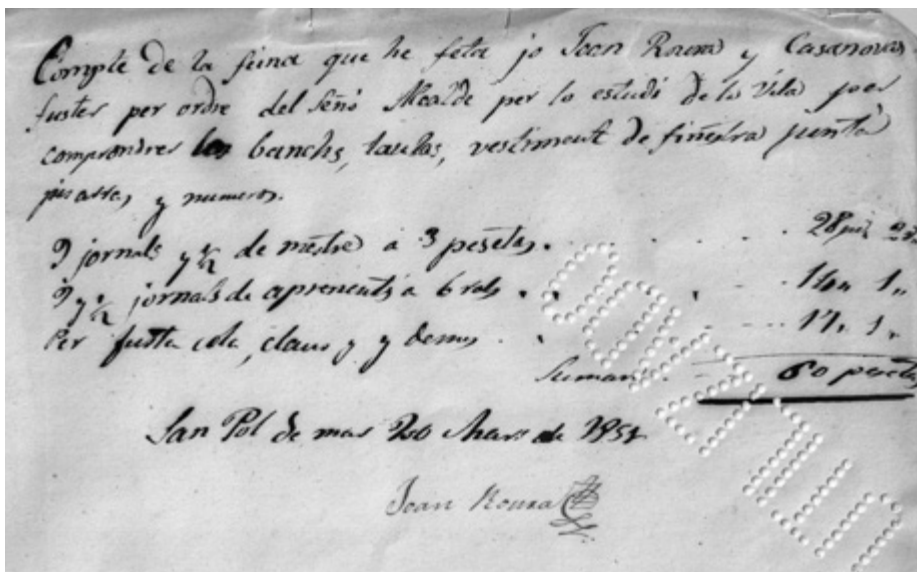 Compte de la feina que he feta jo Joan Roura y Casanovas
fuster per ordre del Señó Alcalde per lo estudi de la Vila per
comprondrer los banchs, taulas, vestiment de fiñestra juntá
pisarras y numeros.
9 jornals y ½ de mestre a 3 pesetas. . . . . 28 pts 2 rs
9 y ½ jornals de aprenents a 6 rals . . . . 14 „ 1 „
Per fusta cola, claus y y demes . . . . . 17 „ 1 „
Suman . - 60 pesetas
San Pol de mar 20 Mars de 1851
Joan Roura